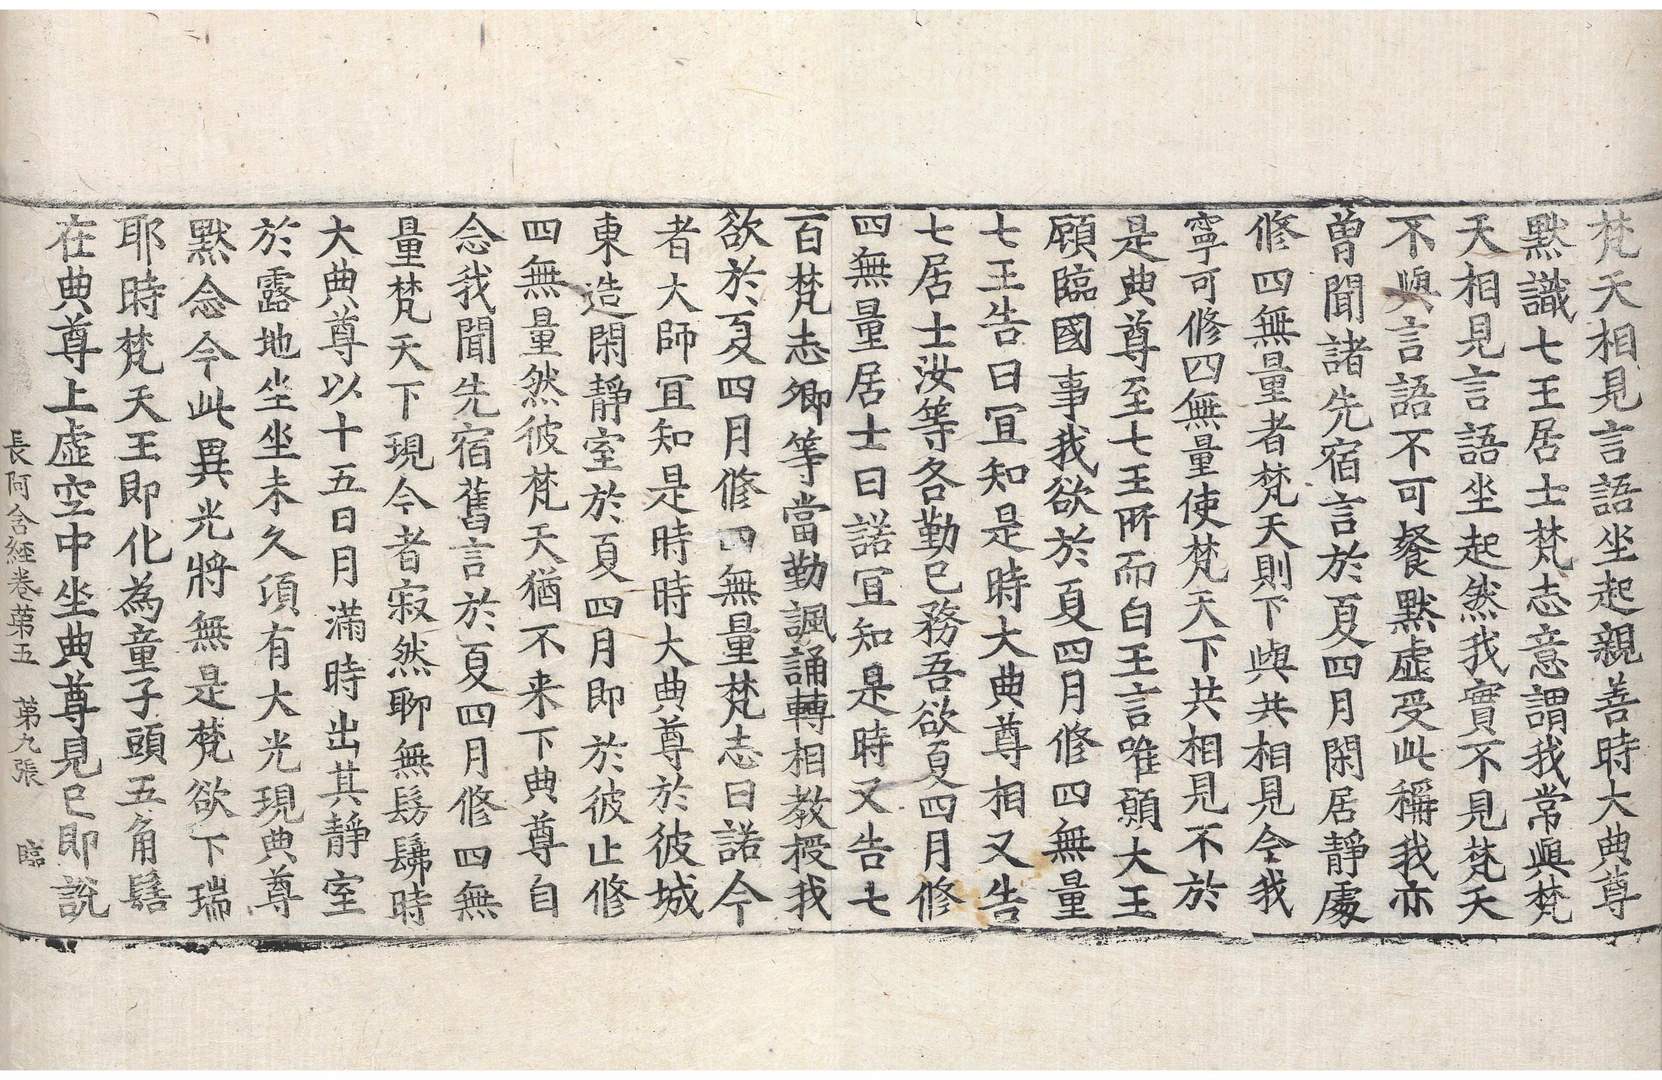 梵天相見言語坐起親善時大典尊
默識七王居士梵志意謂我常與梵
天相見言語坐起然我實不見梵天
不與言語不可餐默虛受此稱我亦
曾聞諸先宿言於夏四月閑居靜處
修四無量者梵天則下與共相見今我
寧可修四無量使梵天下共相見不於
是典尊至七王所而白王言唯願大王
顧臨國事我欲於夏四月修四無量
七王告曰冝知是時大典尊相又告
七居士汝等各勤已務吾欲夏四月修
四無量居士曰諾冝知是時又告七
百梵志卿等當勤諷誦轉相教授我
欲於夏四月修四無量梵志曰諾今
者大師冝知是時時大典尊於彼城
東造閑靜室於夏四月即於彼止修
四無量然彼梵天猶不来下典尊自
念我聞先宿舊言於夏四月修四無
量梵天下現今者寂然聊無髣髴時
大典尊以十五日月滿時出其靜室
於露地坐坐未久須有大光現典尊
默念今此異光將無是梵欲下瑞
耶時梵天王即化為童子頭五角髻
在典尊上虛空中坐典尊見已即說
長阿含經卷苐五 苐九張 臨